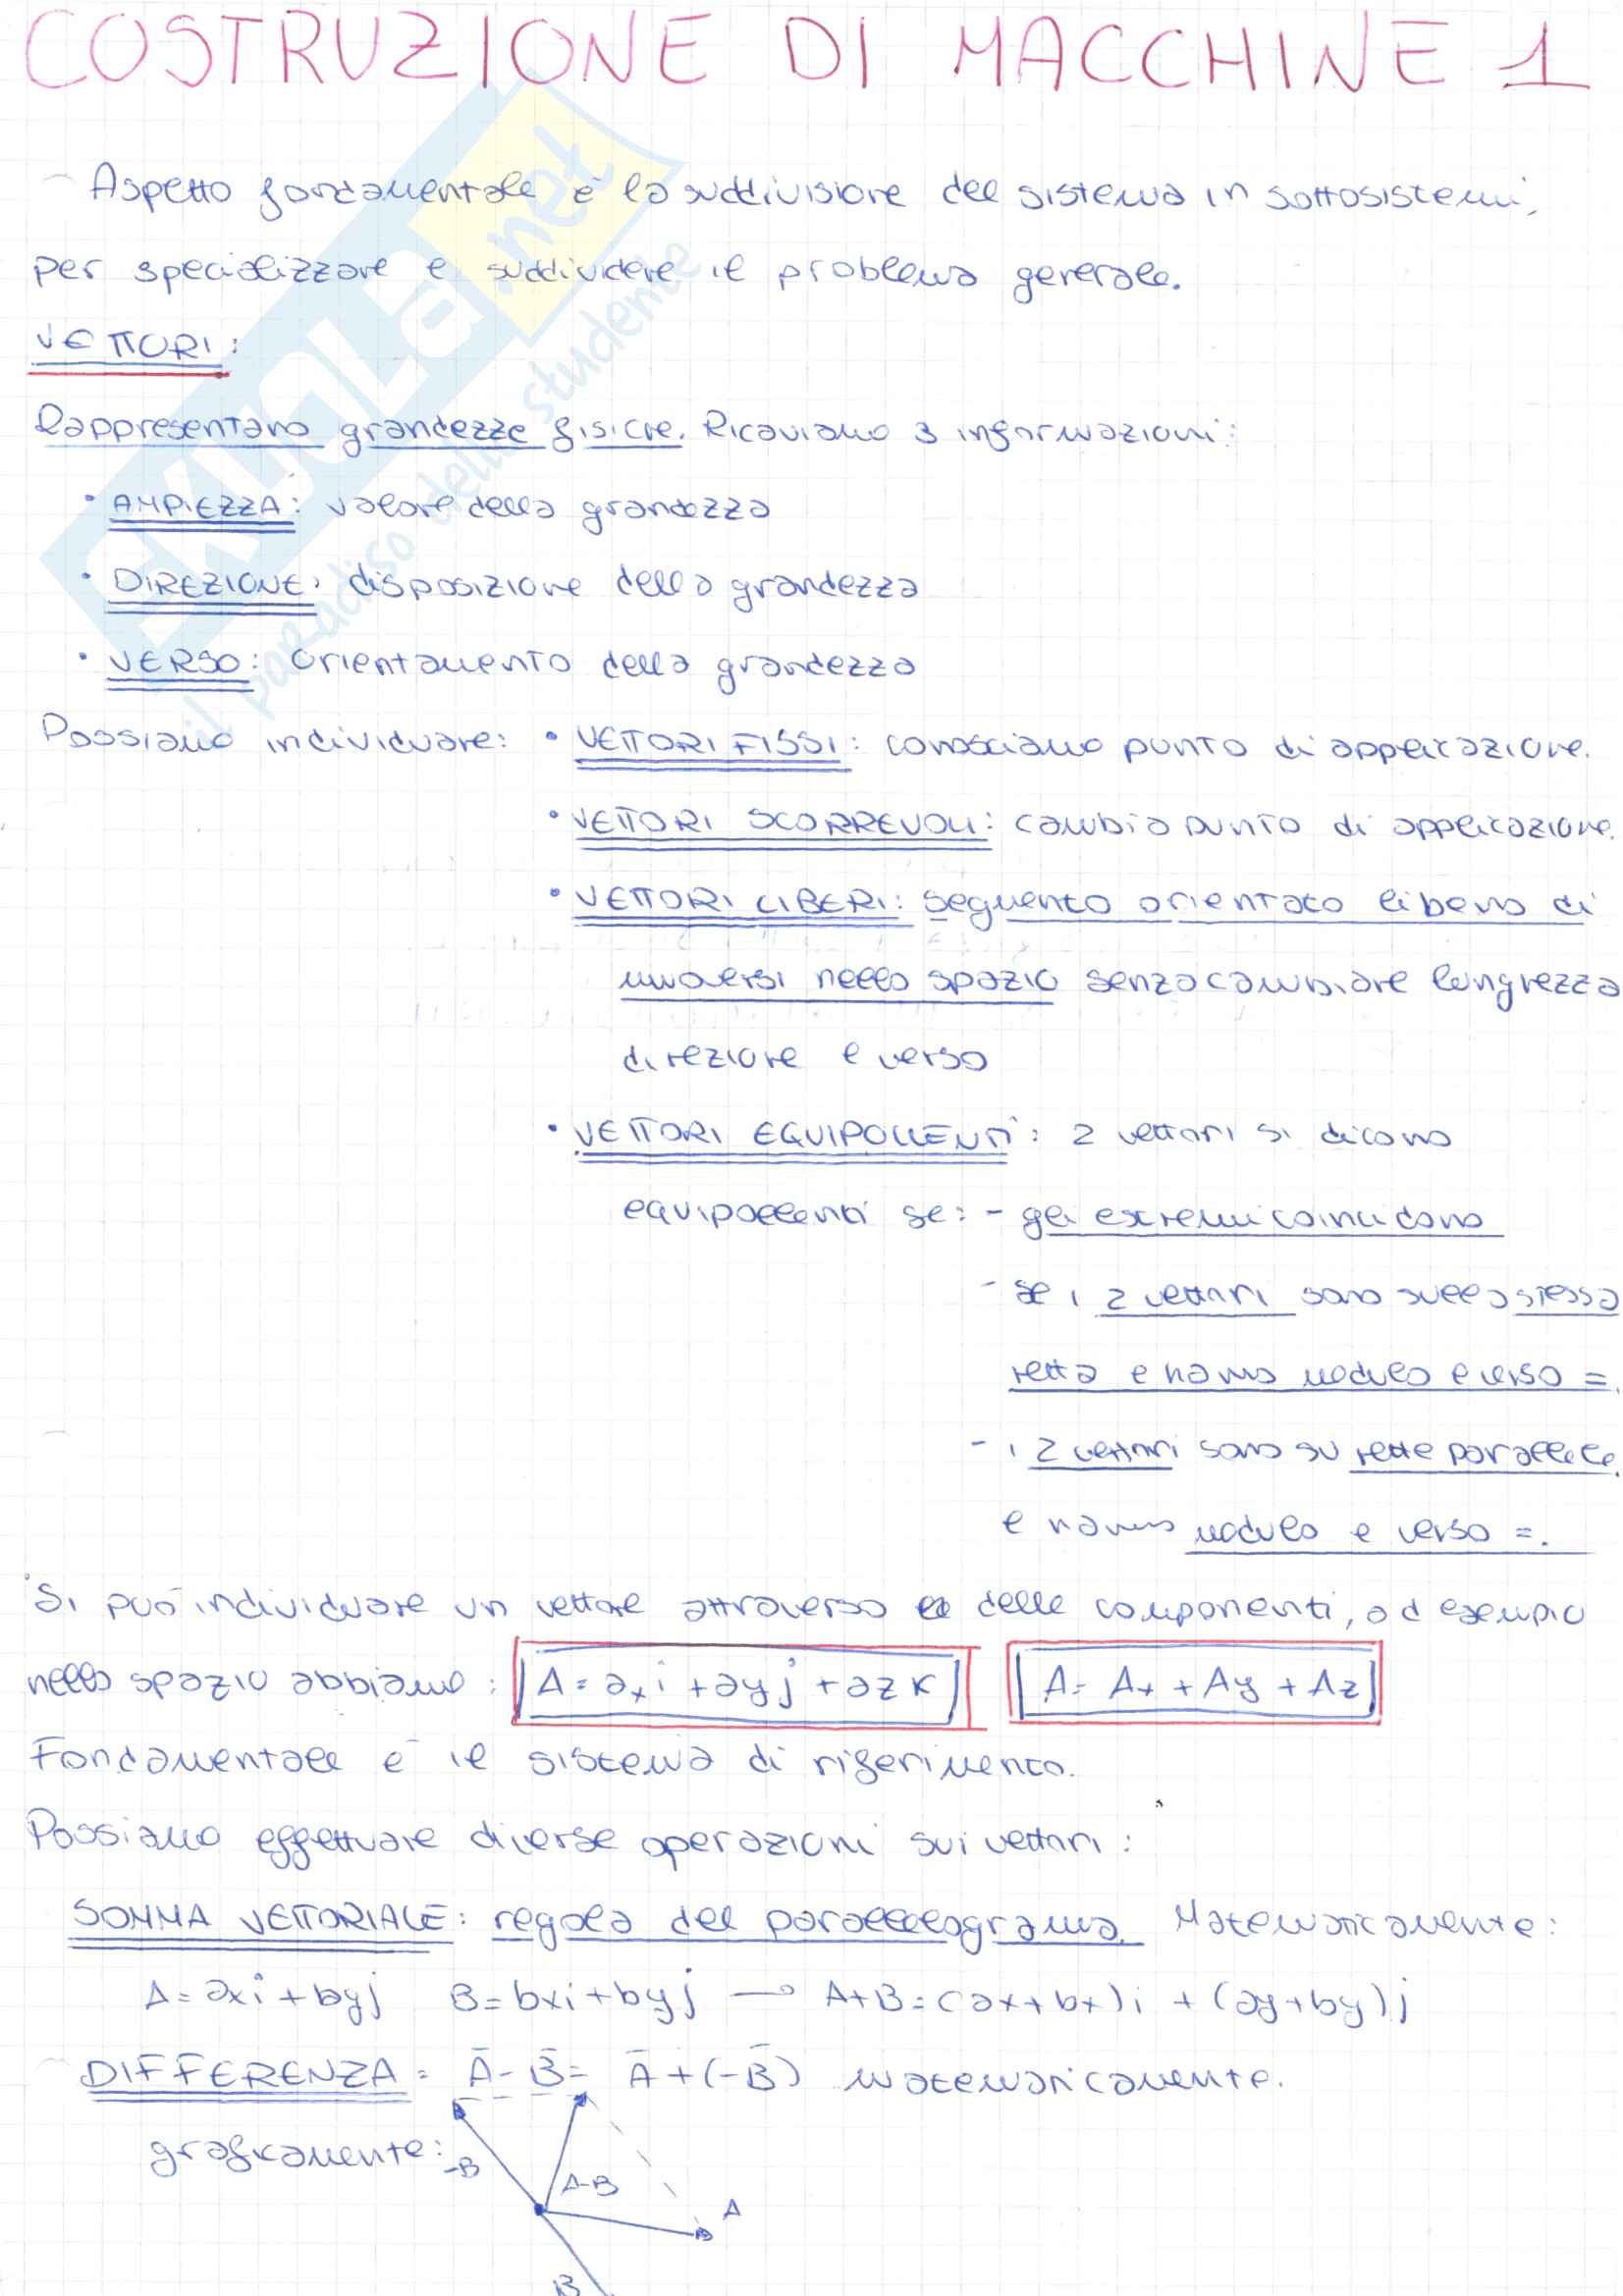 COSTRUZIONE DI MACCHINE 1
Aspetto fondamentale è la suddivisione del sistema in sottosistemi,
per specializzare e suddividere il problema generale.
VETTORI:
Rappresentano grandezze fisiche. Ricaviamo 3 informazioni:
• AMPIEZZA: valore della grandezza
• DIREZIONE: disposizione della grandezza
• VERSO: orientamento della grandezza
Possiamo individuare: • VETTORI FISSI: conosciamo punto di applicazione.
• VETTORI SCORREVOLI: cambia punto di applicazione.
• VETTORI LIBERI: segmento orientato libero di
muoversi nello spazio senza cambiare lunghezza
direzione e verso
• VETTORI EQUIPOLLENTI: 2 vettori si dicono
equipollenti se: - gli estremi coincidono
- se i 2 vettori sono sulla stessa
retta e hanno modulo e verso =.
- i 2 vettori sono su rette parallele
e hanno modulo e verso =.
Si può individuare un vettore attraverso delle componenti, ad esempio
nello spazio abbiamo: A = axi + ayj + azk A = Ax + Ay + Az
Fondamentale è il sistema di riferimento.
Possiamo effettuare diverse operazioni sui vettori:
SOMMA VETTORIALE: regola del parallelogramma. Matematicamente:
A = axi + byj B = bxi + byj → A+B = (ax+bx)i + (ay+by)j
DIFFERENZA = A̅ - B̅ = A̅ + (-B̅) matematicamente.
graficamente:
-B
A-B
A
B
SKUOLA.net
il paradiso dello studente